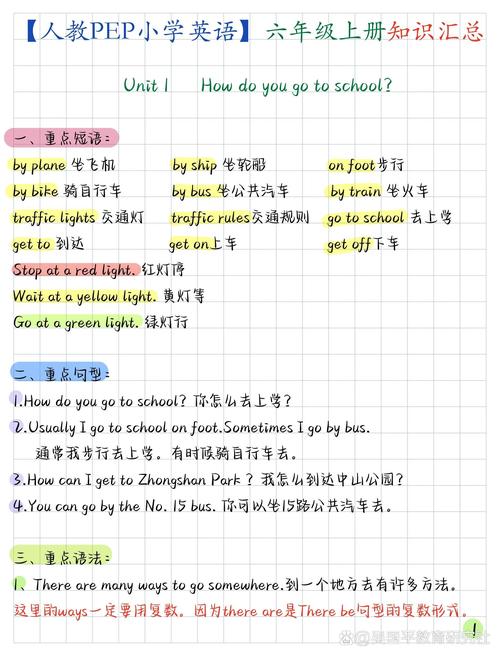 【人教PEP小学英语】六年级上册知识汇总
Unit 1 How do you go to school?
一、重点短语:
by plane 坐飞机 by ship 坐轮船 on foot步行
by bike 骑自行车 by bus 坐公共汽车 by train 坐火车
traffic lights 交通灯 traffic rules交通规则 go to school 去上学
get to 到达 get on上车 get off下车
Stop at a red light. 红灯停
Wait at a yellow light. 黄灯等
Go at a green light. 绿灯行
二、重点句型:
1.How do you go to school? 你怎么去上学?
2.Usually I go to school on foot.Sometimes I go by bus.
通常我步行去上学。有时候骑自行车去。
3.How can I get to Zhongshan Park ? 我怎么到达中山公园?
4.You can go by the No. 15 bus. 你可以坐15路公共汽车去。
三、重点语法:
1、There are many ways to go somewhere.到一个地方去有许多方法。
这里的ways一定要用复数。因为there are是There be句型的复数形式。
1